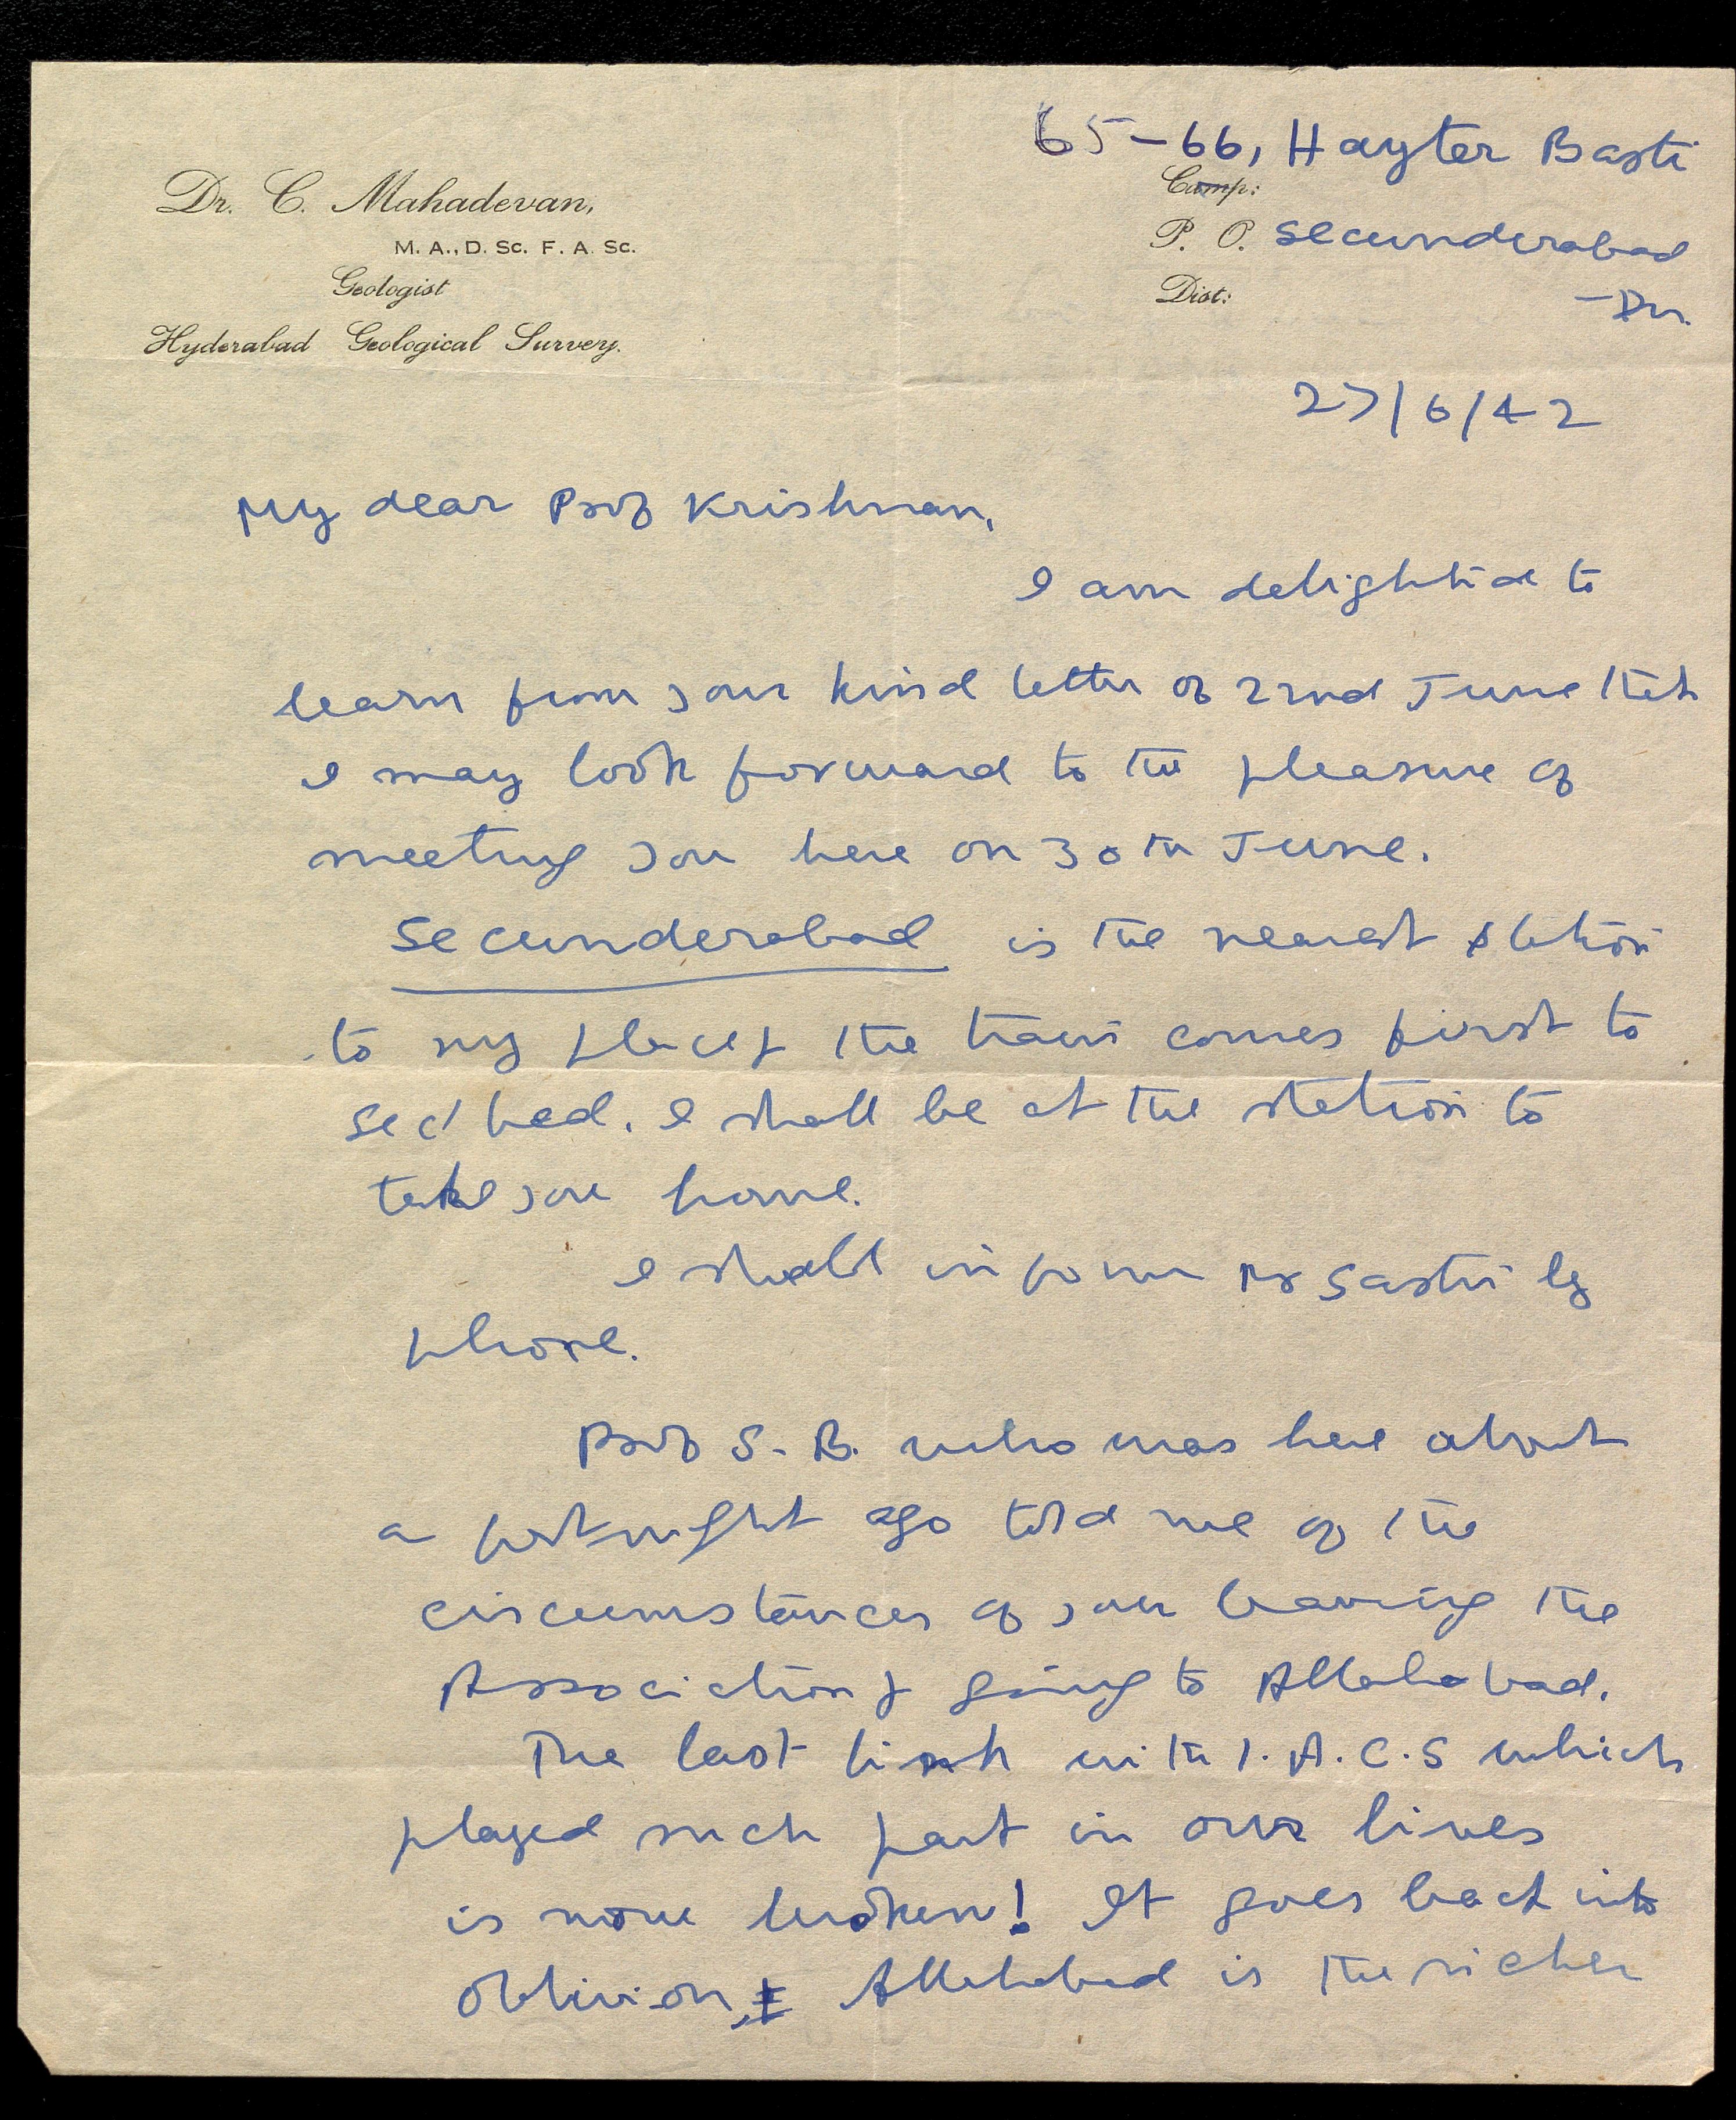 65-66, Hayter Basti
Dr. C. Mahadevan,
Camp:
M. A., D. Sc. F. A. Sc.
P. O. Secunderabad
Geologist
Dist:
- Dn.
Hyderabad Geological Survey.
27/6/42
My dear Prof Krishnan,
I am delighted to
learn from your kind letter of 22nd June that
I may look forward to the pleasure of
meeting you here on 30th June.
Secunderabad is the nearest station
to my place & the train comes first to
Sec'bad. I shall be at the station to
take you home.
I shall inform Mr Sastri by
phone.
Prof S. B. who was here about
a fortnight ago told me of the
circumstances of your leaving the
Association & going to Allahabad.
The last link with I. A. C. S which
played such part in our lives
is now broken! It goes back into
oblivion, & Allahabad is the richer